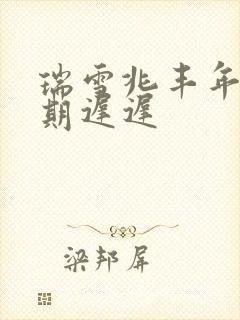 瑞雪兆丰年
期遲遲
梁邦屏